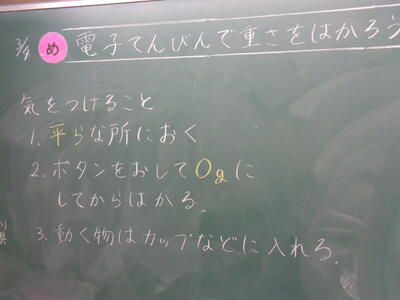 3/4 め 電子てんびんで重さをはかろう
気をつけること
1. 平らな所におく
2. ボタンをおして0gに
してからはかる。
3. 動く物はカップなどに入れる。